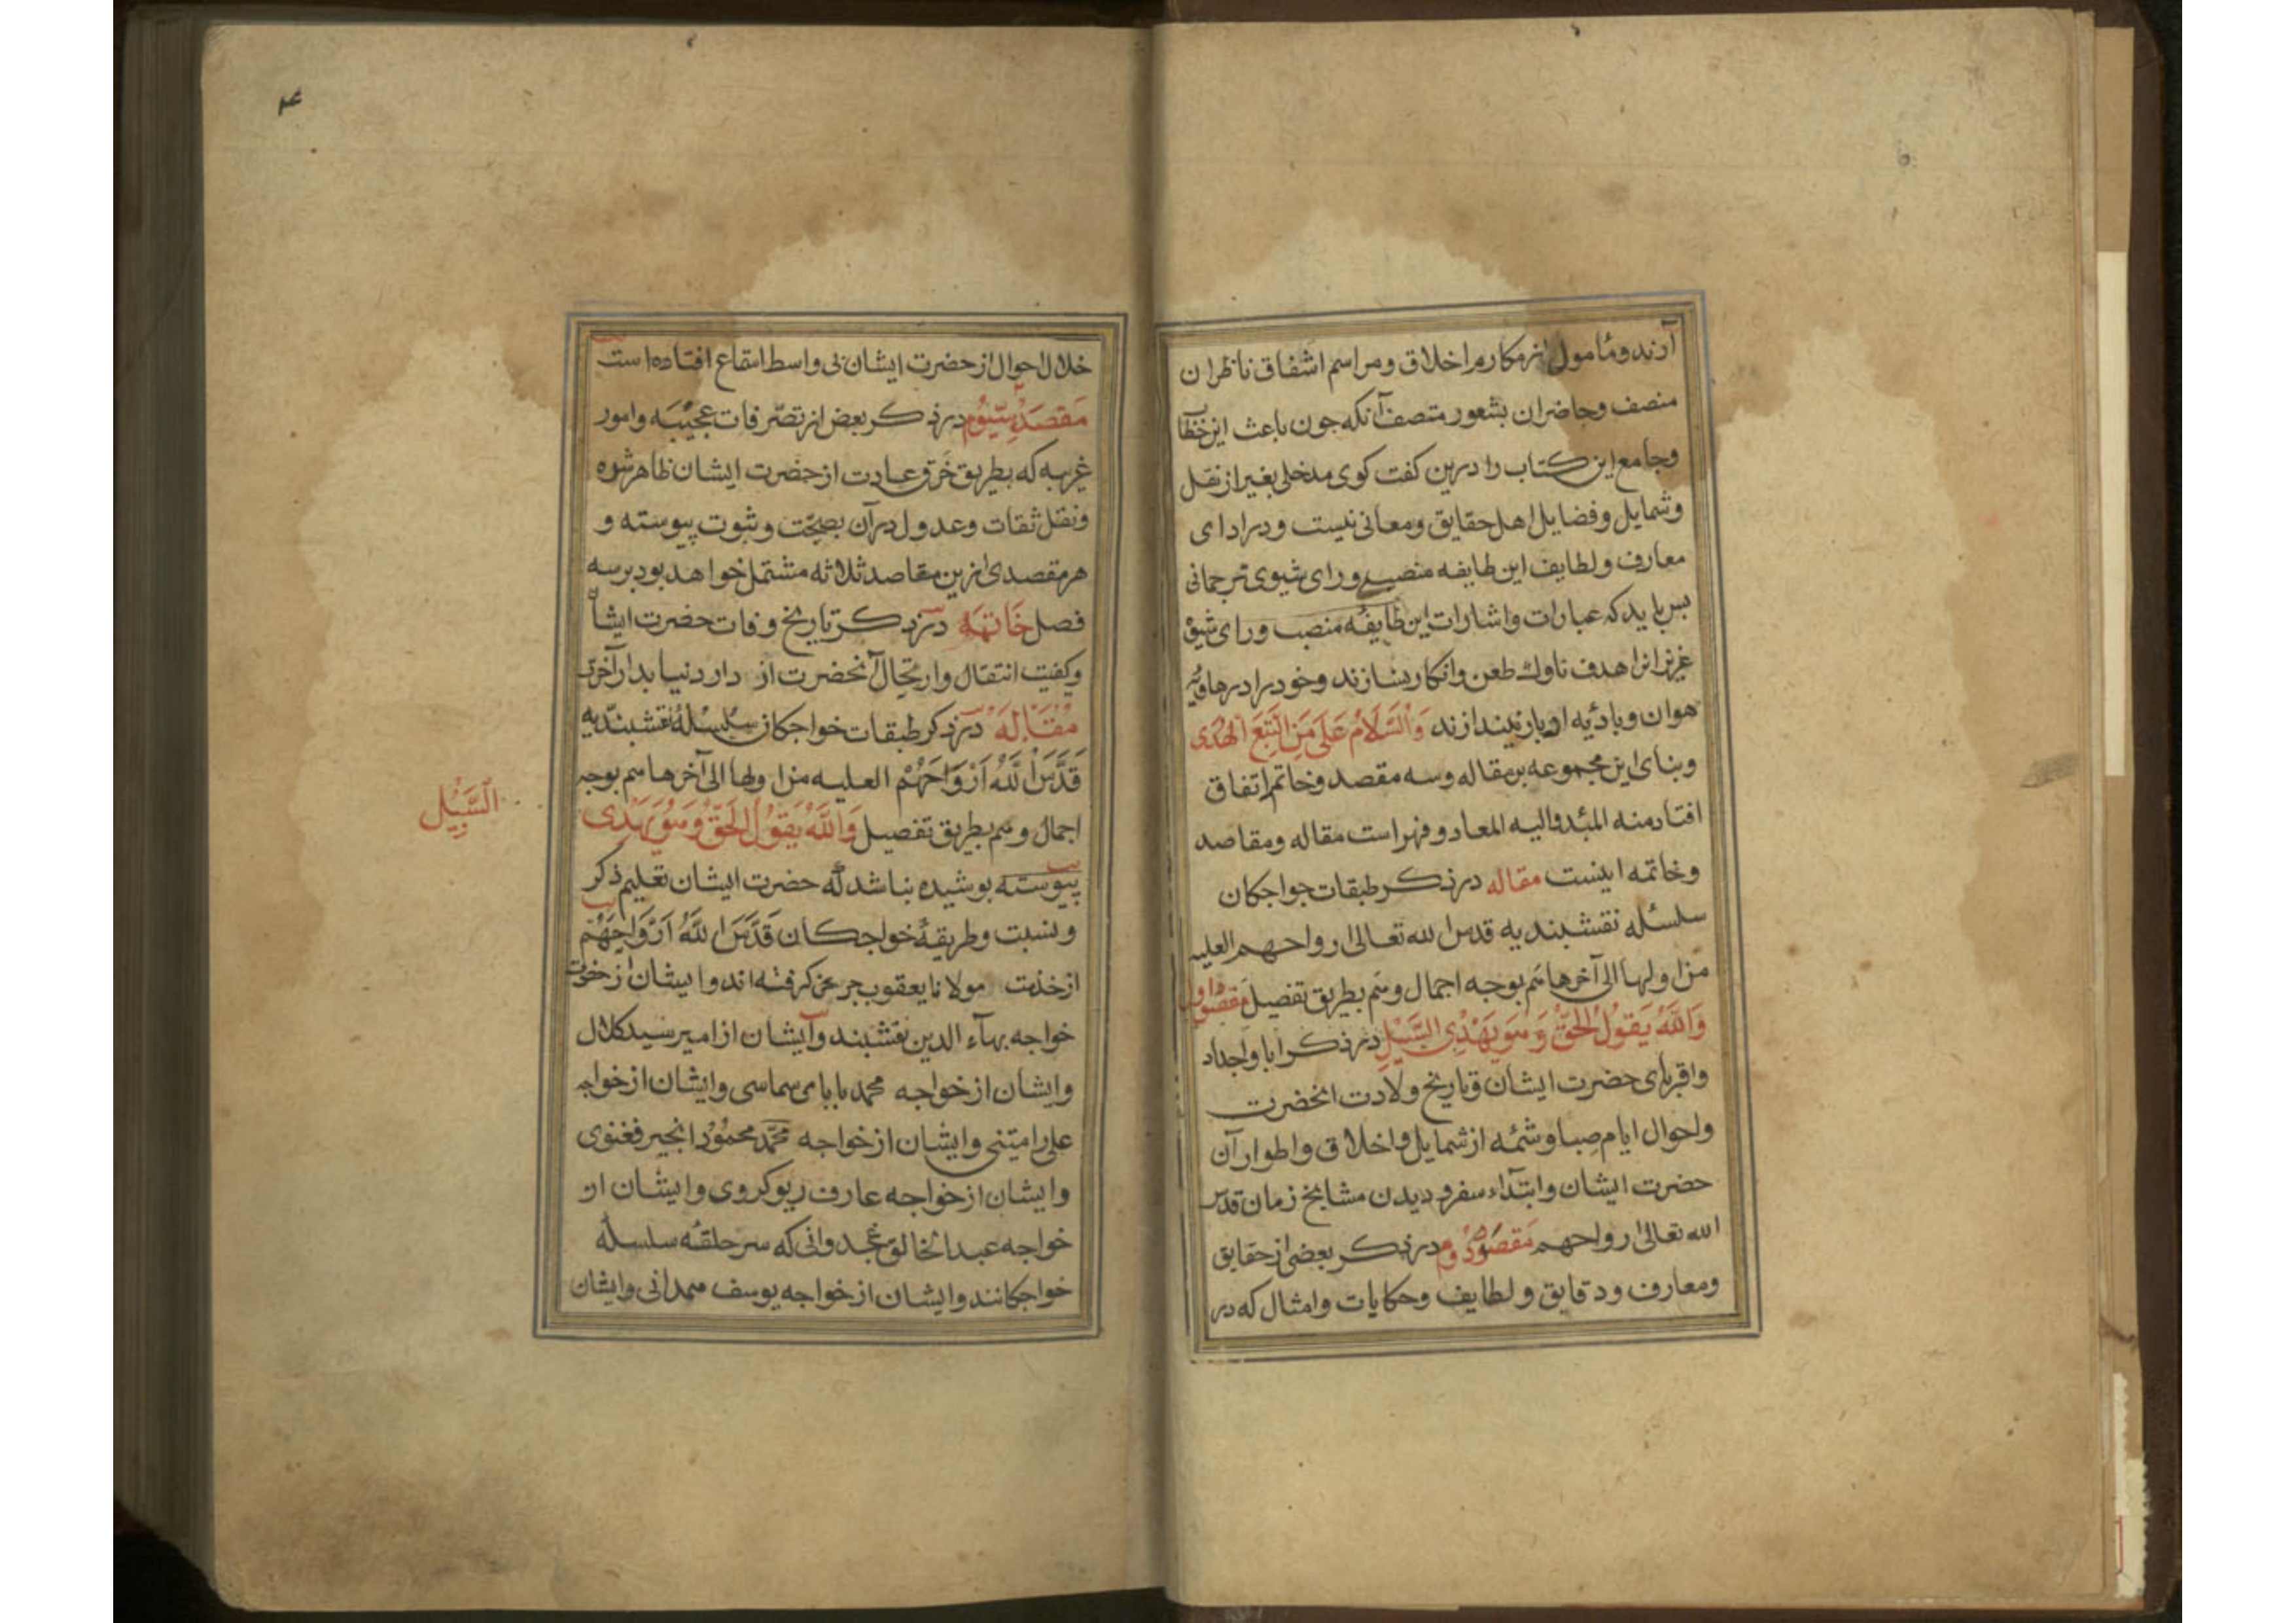 آرند و مأمول از مکارم اخلاق و مراسم اشفاق ناظران
منصف و حاضران بشعور متصف آنکه جون باعث این خطاب
و جامع این کتاب را درین کفت کوی مدخلی بغیر از نقل
و شمایل و فضایل اهل حقایق و معانی نیست و در ادای
معارف و لطایف این طایفه منصبی ورای شیوی ترجمانی
بس باید که عبارات و اشارات این طایفه منصب ورای
عزیزانرا هدف ناوک طعن و انکار نسازند و خود را در هاویه
هوان و بادیه ادبار نیندازند وَالسَّلَامُ عَلَى مَنِ اتَّبَعَ الْهُدَى
و بنای این مجموعه بر مقاله و سه مقصد و خاتم اتفاق
افتاد منه المبدء والیه المعاد و فهراست مقاله و مقاصد
و خاتمه اینست مقاله در ذکر طبقات خواجکان
سلسله نقشبندیه قدس الله تعالی ارواحهم العلیه
من اولها الی آخرها هم بوجه اجمال و هم بطریق تفصیل مقصد اول
وَاللَّهُ يَقُولُ الْحَقَّ وَهُوَ يَهْدِي السَّبِيلَ در ذکر ابا و اجداد
و اقربای حضرت ایشان و تاریخ ولادت انحضرت
و احوال ایام صبا و شمه از شمایل و اخلاق و اطوار آن
حضرت ایشان و ابتداء سفر و دیدن مشایخ زمان قدس
الله تعالی ارواحهم مقصد دوم در ذکر بعضی از حقایق
و معارف و دقایق و لطایف و حکایات و امثال که در
۴
خلال احوال از حضرت ایشان بی واسط استماع افتاده است
مَقصَد سِیّوم در ذکر بعض از تصرفات عجیبه و امور
غریبه که بطریق خرق عادت از حضرت ایشان ظاهر شده
و نقل ثقات و عدول در آن بصحّت و ثبوت پیوسته و
هر مقصدی ازین مقاصد ثلاثه مشتمل خواهد بود بر سه
فصل خَاتمَه در ذکر تاریخ وفات حضرت ایشان
و کفیت انتقال و ارتحال آنحضرت از دار دنیا بدار آخرت
مَقَالَه در ذکر طبقات خواجکان سلسلهٔ نقشبندیه
قَدَّسَ اللَّهُ اَرْوَاحَهُمْ العلیه من اولها الی آخرها هم بوجه
اجمال و هم بطریق تفصیل وَاللَّهُ يَقُولُ الْحَقَّ وَهُوَ يَهْدِى
السَّبِيْل
پیوسته بوشیده نباشد که حضرت ایشان تعلیم ذکر
و نسبت و طریقهٔ خواجکان قَدَّسَ اللَّهُ اَرْوَاحَهُمْ
از خدمت مولانا یعقوب جرخی کرفته اند و ایشان از حضرت
خواجه بهآء الدین نقشبند و ایشان از امیر سید کلال
و ایشان از خواجه محمد بابای سماسی و ایشان از خواجه
علی رامیتنی و ایشان از خواجه محمّد محمُوْد انجیر فغنوی
و ایشان از خواجه عارف ریوکروی و ایشان از
خواجه عبد الخالق غجدوانی که سر حلقهٔ سلسلهٔ
خواجکانند و ایشان از خواجه یوسف همدانی و ایشان